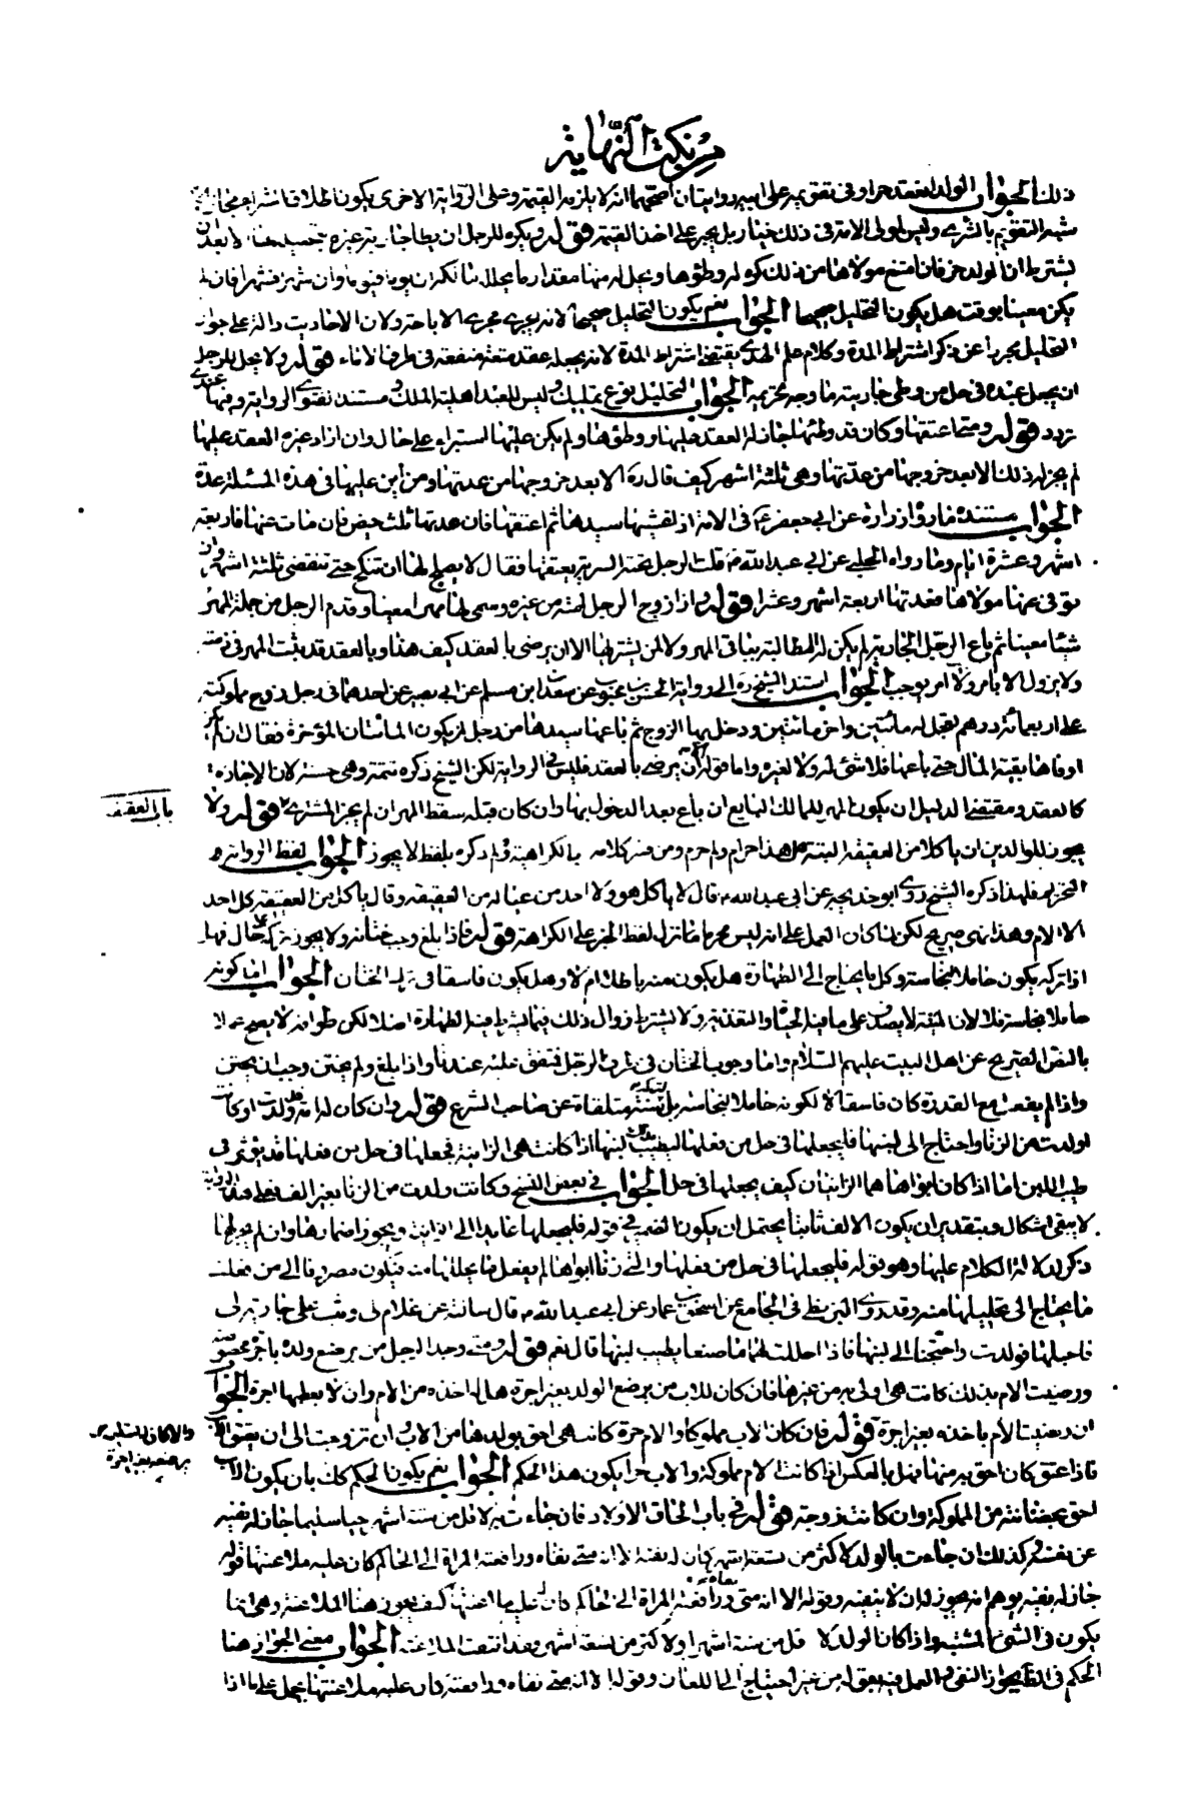 من نكت النهاية
ذلك الجواب الولد انعقد حرا وفى تقويمه على ابيه روايتان اصحهما انه لا يلزمه القيمة وعلى الرواية الاخرى يكون اطلاقا الشراء مجازا
شبه التقويم بالشرى وليس لمولى الامة فى ذلك خيار بل يجبر على اخذ القيمة قوله ويكره للرجل ان يطأ جارية غيره بتحليلها لا بعد ان
يشترط ان الولد حر فان امتنع مولاها من ذلك كره له وطؤها ويحل له منها مقدار ما يحلله مالكها ان يوما فيوما وان شهرا فشهرا فان لم
يكن معينا بوقت هل يكون التحليل صحيحا الجواب نعم يكون التحليل صحيحا لانه يجرى مجرى الاباحة ولان الاحاديث دالة على جواز
التحليل مجردا عن ذكر اشتراط المدة وكلام علم الهدى يقتضى اشتراط المدة لانه يجعله عقد متعة منفعته فى طرف الاماء قوله ولا يحل للرجل
ان يجعل عبده فى حل من وطى جاريته ما وجه تحريمه الجواب التحليل نوع تمليك وليس للعبد اهلية الملك ومستند الفتوى الرواية وفيها عندى
تردد قوله ومتى اعتقها وكان قد وطئها جاز له العقد عليها ووطؤها ولم يكن عليها استبراء على حال وان اراد غيره العقد عليها
لم يجز له ذلك الا بعد خروجها من عدتها وهى ثلثة اشهر كيف قال ره الا بعد خروجها من عدتها ومن اين عليها فى هذه المسئلة عدة
الجواب مستنده ما رواه زرارة عن ابى جعفر ع فى الامة اذا غشيها سيدها ثم اعتقها فان عدتها ثلث حيض فان مات عنها فاربعة
اشهر وعشرة ايام وما رواه الحلبى عن ابى عبد الله ع قلت الرجل تحته السرية يعتقها فقال لا يصلح لها ان تنكح حتى تنقضى ثلثة اشهر وان
توفى عنها مولاها فعدتها اربعة اشهر وعشرا قوله واذا زوج الرجل امته من غيره وسمى لها مهرا معينا وقدم الرجل من جملة المهر
شيئا معينا ثم باع الرجل الجارية لم يكن له المطالبة بباقى المهر ولا لمن يشتريها الا ان يرضى بالعقد كيف هذا وبالعقد قد يثبت المهر فى ذمته
ولا يزول الا بامر ولا امر يوجب الجواب استند الشيخ ره الى رواية الحسن بن محبوب عن سعدان بن مسلم عن ابى بصير عن احدهما فى رجل زوج مملوكته
على اربعمائة درهم فعجل له مائتين واخر مائتين ودخل بها الزوج ثم باعها سيدها من رجل لمن يكون المائتان المؤخرة فقال ان لم يكن
اوفاها بقية المال حتى باعها فلا شئ له ولا لغيره واما قوله الا ان يرضى بالعقد فليس فى الرواية لكن الشيخ ذكره تتمة وهى حسنة لان الاجازة
كالعقد ومقتضى الدليل ان يكون المهر للمالك البايع ان باع بعد الدخول بها وان كان قبله سقط المهر ان لم يجز المشترى قوله ولا
باب العقيقة
يجوز للوالدين ان ياكلا من العقيقة البتة هل هذا حرام وحرم ومن فسر كلامه بالكراهية ولم ذكره بلفظ لا يجوز الجواب لفظ الرواية
التحريم فلهذا ذكره الشيخ روى ابو خديجة عن ابى عبد الله ع قال لا ياكل هو ولا احد من عياله من العقيقة وقال ياكل من العقيقة كل احد
الا الام وهذا نهى صريح لكن لما كان العمل على انه ليس محرما نزل لفظ الخبر على الكراهة قوله فاذا بلغ وجب ختانه ولا يجوز تركه على حال فهل
اذا تركه يكون حاملا لنجاسة وكل ما يحتاج الى الطهارة هل يكون منه باطلا ام لا وهل يكون فاسقا فى ترك الختان الجواب اما كونه
حاملا نجاسة فلا لان الميتة لا يصدق على ما فيه الحياة والتغذية ولا يشترط زوال ذلك فيما يشترط فيه الطهارة اصلا لكن طوافه لا يصح عملا
بالنص الصريح عن اهل البيت عليهم السلام واما وجوب الختان فى طرف الرجل فمتفق عليه عندنا واذا بلغ ولم يختن وجب ان يختتن
واذا لم يفعل مع القدرة كان فاسقا لا لكونه حاملا لنجاسة بل لتركه سنة متلقاة عن صاحب الشرع قوله وان كان له امة ولدت او كانت
اولدت من الزنا واحتاج الى لبنها فليجعلها فى حل من فعلها ليطيب بذلك لبنها اذا كانت هى الزانية فجعلها فى حل من فعلها قد يؤثر فى
طيب اللبن اما اذا كان ابواها هما الزانيان كيف يجعلها فى حل الجواب فى بعض النسخ وكانت ولدت من الزنا بغير الف فعلى هذه الرواية
لا يبقى اشكال وبتقدير ان يكون الالف ثابتا يحتمل ان يكون الضمير فى قوله فليجعلها عايدا الى الزانية ويجوز اضمارها وان لم يجر لها
ذكر لدلالة الكلام عليها وهو قوله فليجعلها فى حل من فعلها والتى زنا ابواها لم يفعل ما يحللها منه فتكون مصروفا الى من فعلت
ما يحتاج الى تحليلها منه وقد روى البزنطى فى الجامع عن اسحق بن عمار عن ابى عبد الله ع قال سالته عن غلام لى وثب على جارية لى
فاحبلها فولدت واحتجنا الى لبنها فاذا احللت لهما ما صنعا يطيب لبنها قال نعم قوله ومتى وجد الرجل من يرضع ولده باجرة مخصوصة
ورضيت الام بذلك كانت هى اولى به من غيرها فان كان للاب من يرضع الولد بغير اجرة هل له اخذه من الام وان لا يعطيها اجرة الجواب
ان رضيت الام باخذه بغير اجرة قوله فان كان الاب مملوكا والام حرة كانت هى احق بولدها من الاب وان تزوجت الى ان يعتق الاب
والا كان للاب تسليمه الى من يرضعه بغير اجرة
فاذا عتق كان احق به منها فهل بالعكس اذا كانت الام مملوكة والاب حرا يكون هذا الحكم الجواب نعم يكون الحكم كك بان يكون الاب
احق بحضانته من المملوكة وان كانت زوجة قوله فى باب الحاق الاولاد فان جاءت به لاقل من ستة اشهر حيا سليما جاز له نفيه
عن نفسه وكذلك ان جاءت بالولد لاكثر من تسعة اشهر كان له نفيه الا انه متى نفاه ورافعته المراة الى الحاكم كان عليه ملاعنتها قوله
جاز له نفيه يوهم انه يجوز له ان لا ينفيه وقوله الا انه متى نفاه ورافعته المراة الى الحاكم كان عليه ملاعنتها كيف يجوز هنا الملاعنة وهى انما
يكون فى الشئ المشتبه واذا كان الولد لاقل من ستة اشهر او لاكثر من تسعة اشهر فقد انتفت الملاعنة الجواب معنى الجواز هنا
الحكم فى الظ بجواز النفى والعمل فيه بقوله من غير احتياج الى اللعان وقوله الا انه متى نفاه ورافعته كان عليه ملاعنتها يحمل على ما اذا